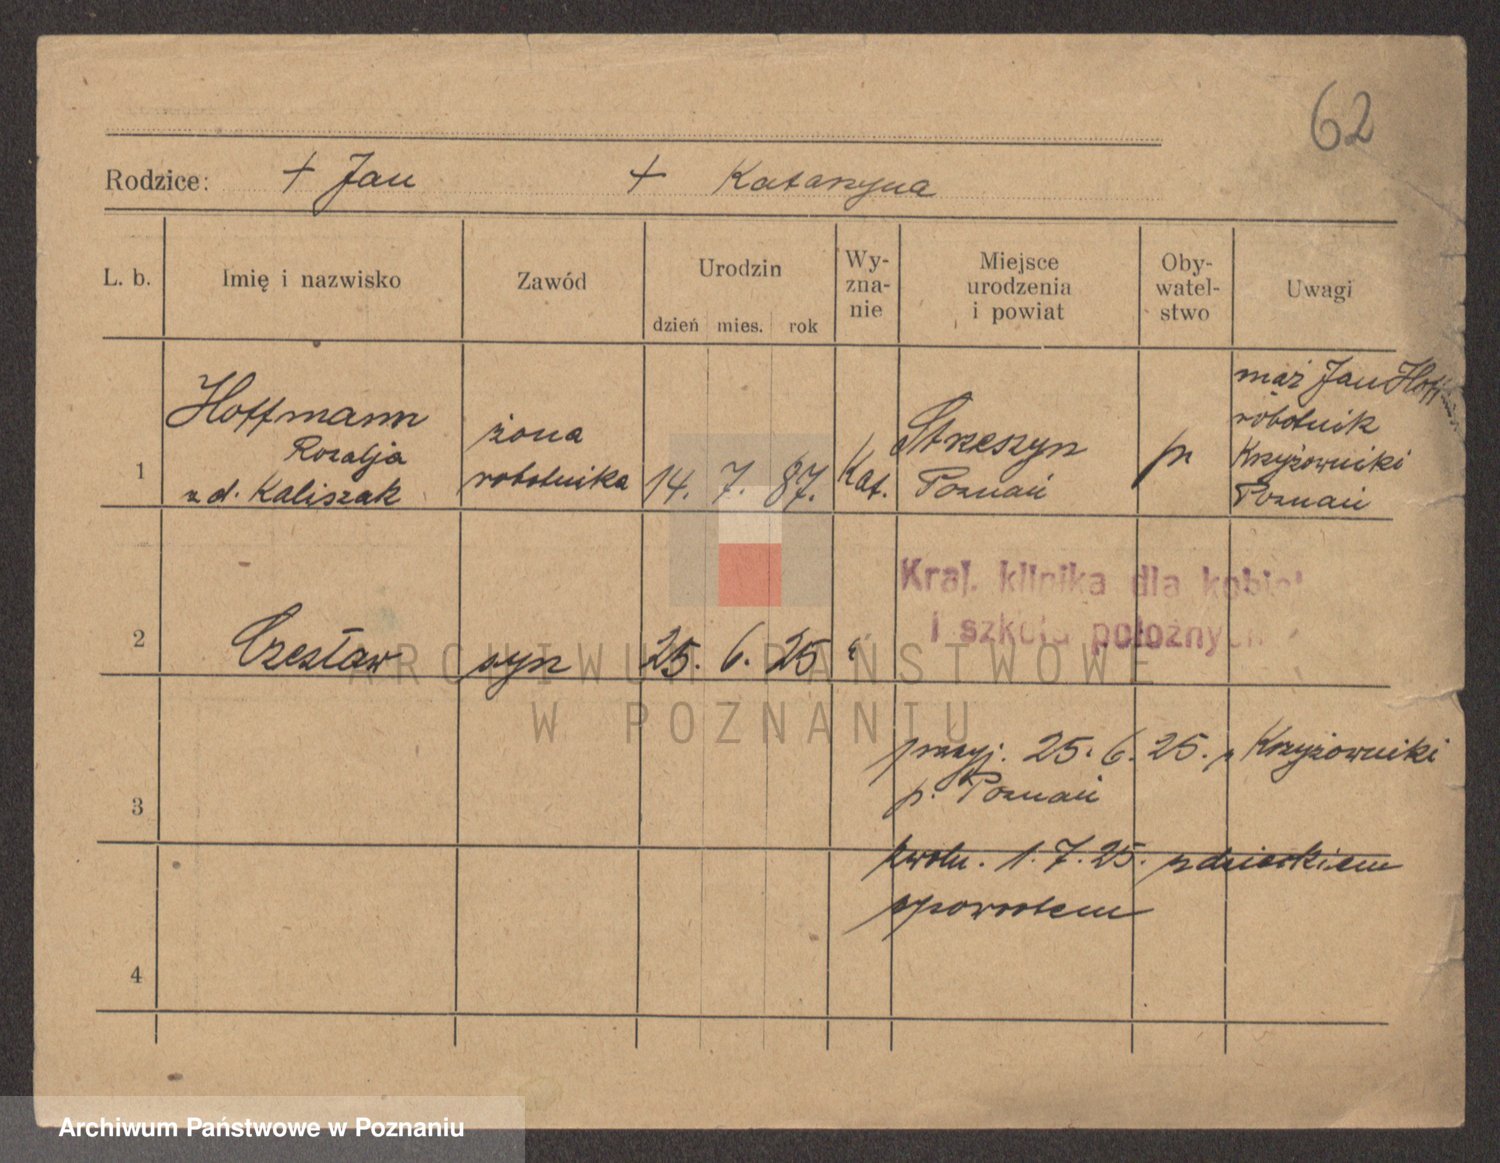 62
Rodzice: + Jan + Katarzyna
L. b.
Imię i nazwisko
Zawód
Urodzin
dzień mies. rok
Wy-
zna-
nie
Miejsce
urodzenia
i powiat
Oby-
watel-
stwo
Uwagi
1
Hoffmann
Rozalja
z d. Kaliszak
żona
robotnika
14. 7. 87.
Kat.
Strzeszyn
Poznań
pr.
mąż Jan Hoffmann
robotnik
Krzyżowniki
Poznań
2
Czesław
syn
25. 6. 25
"
Kraj. klinika dla kobiet
i szkoła położnych
ARCHIWUM PAŃSTWOWE
W POZNANIU
3
przyj. 25. 6. 25. z Krzyżowniki
p. Poznań
zwoln. 1. 7. 25. z dzieckiem
spowrotem
4
Archiwum Państwowe w Poznaniu